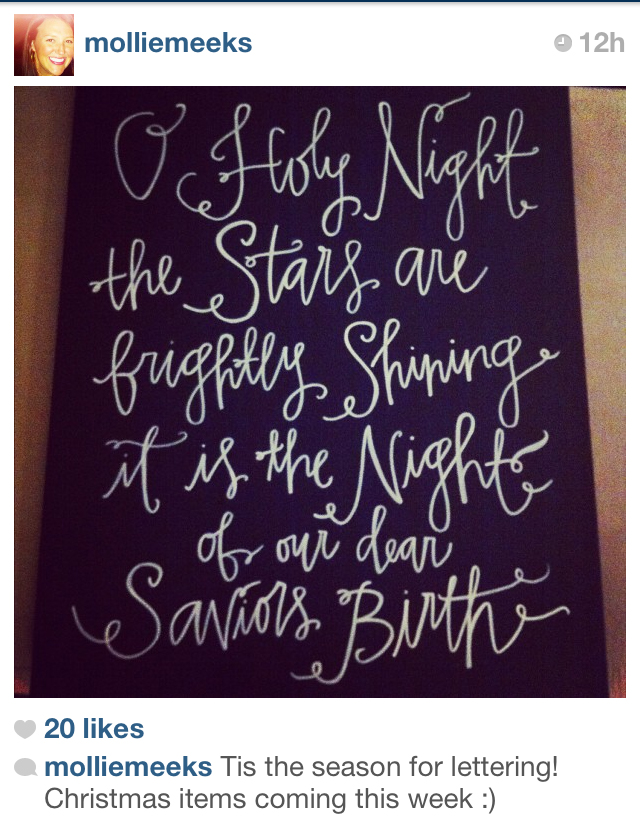 molliemeeks 12h
O Holy Night
the Stars are
brightly Shining
it is the Night
of our dear
Saviors Birth
20 likes
molliemeeks Tis the season for lettering!
Christmas items coming this week :)